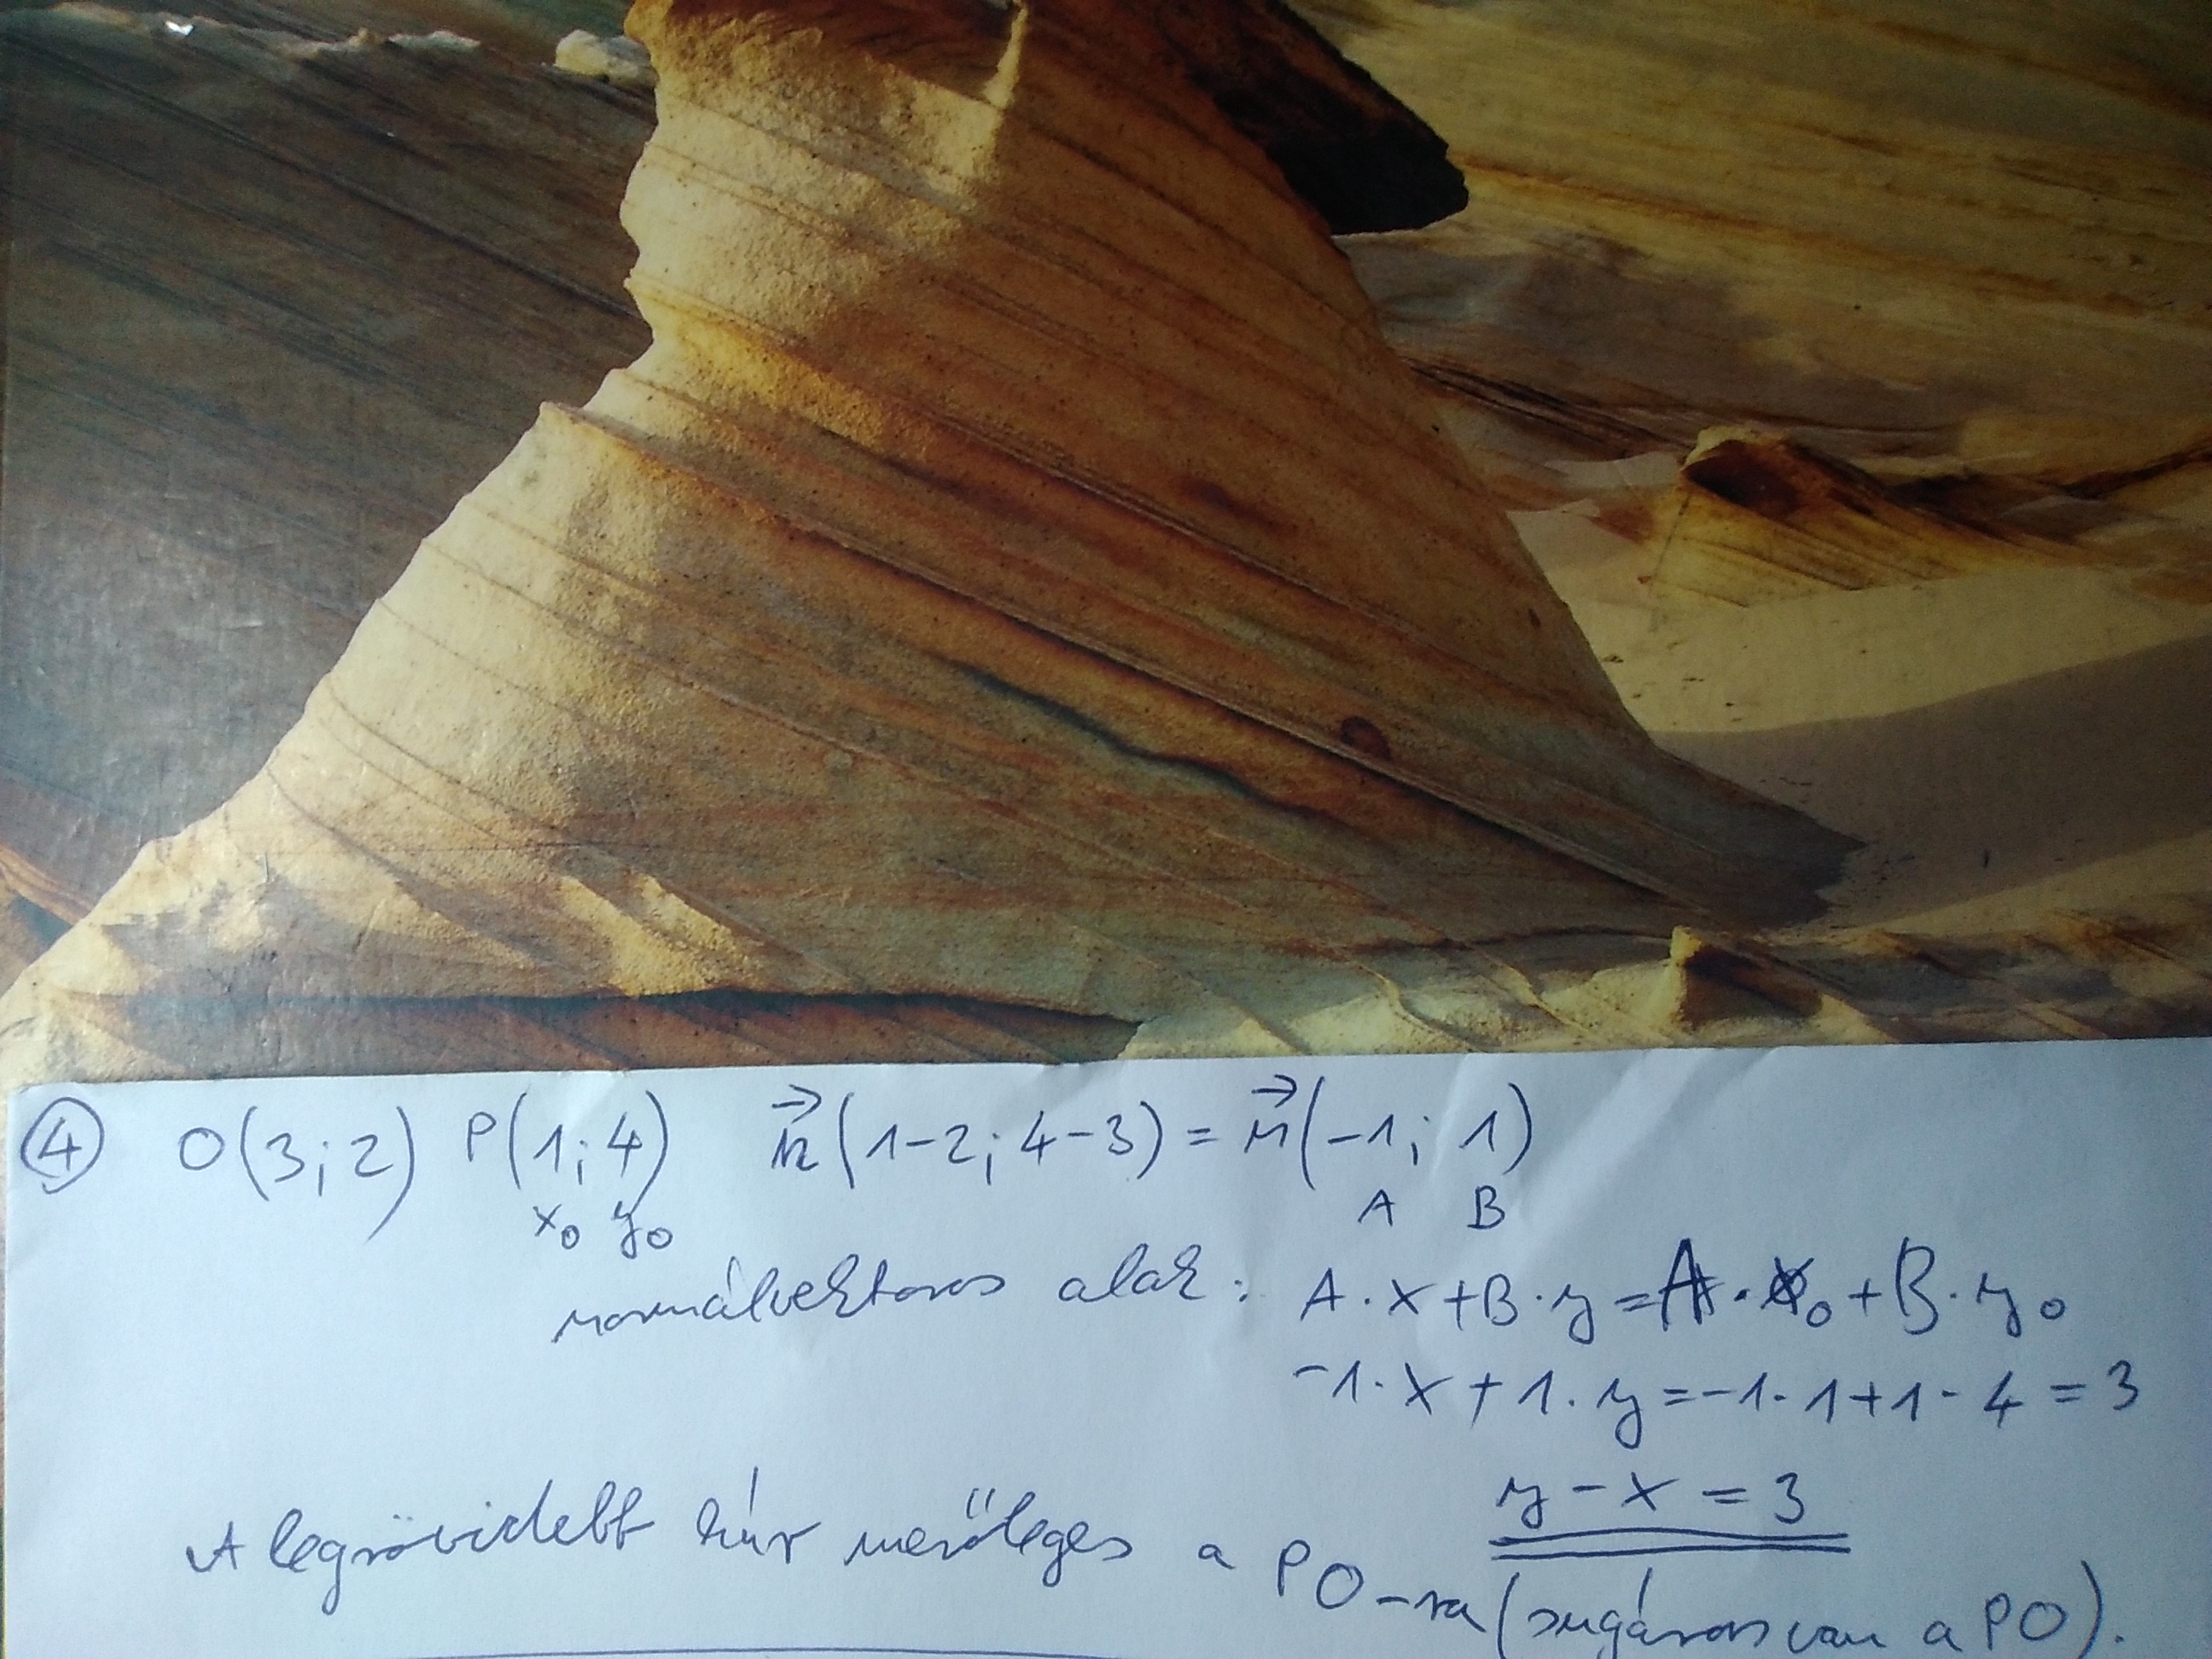 ④ O(3;2) P(1;4) n⃗(1-2;4-3)=n⃗(-1;1)
x₀ y₀ A B
normálvektoros alak: A·x+B·y=A·x₀+B·y₀
-1·x+1·y=-1·1+1·4=3
y-x=3
A legrövidebb húr merőleges a PO-ra (sugáron van a PO).